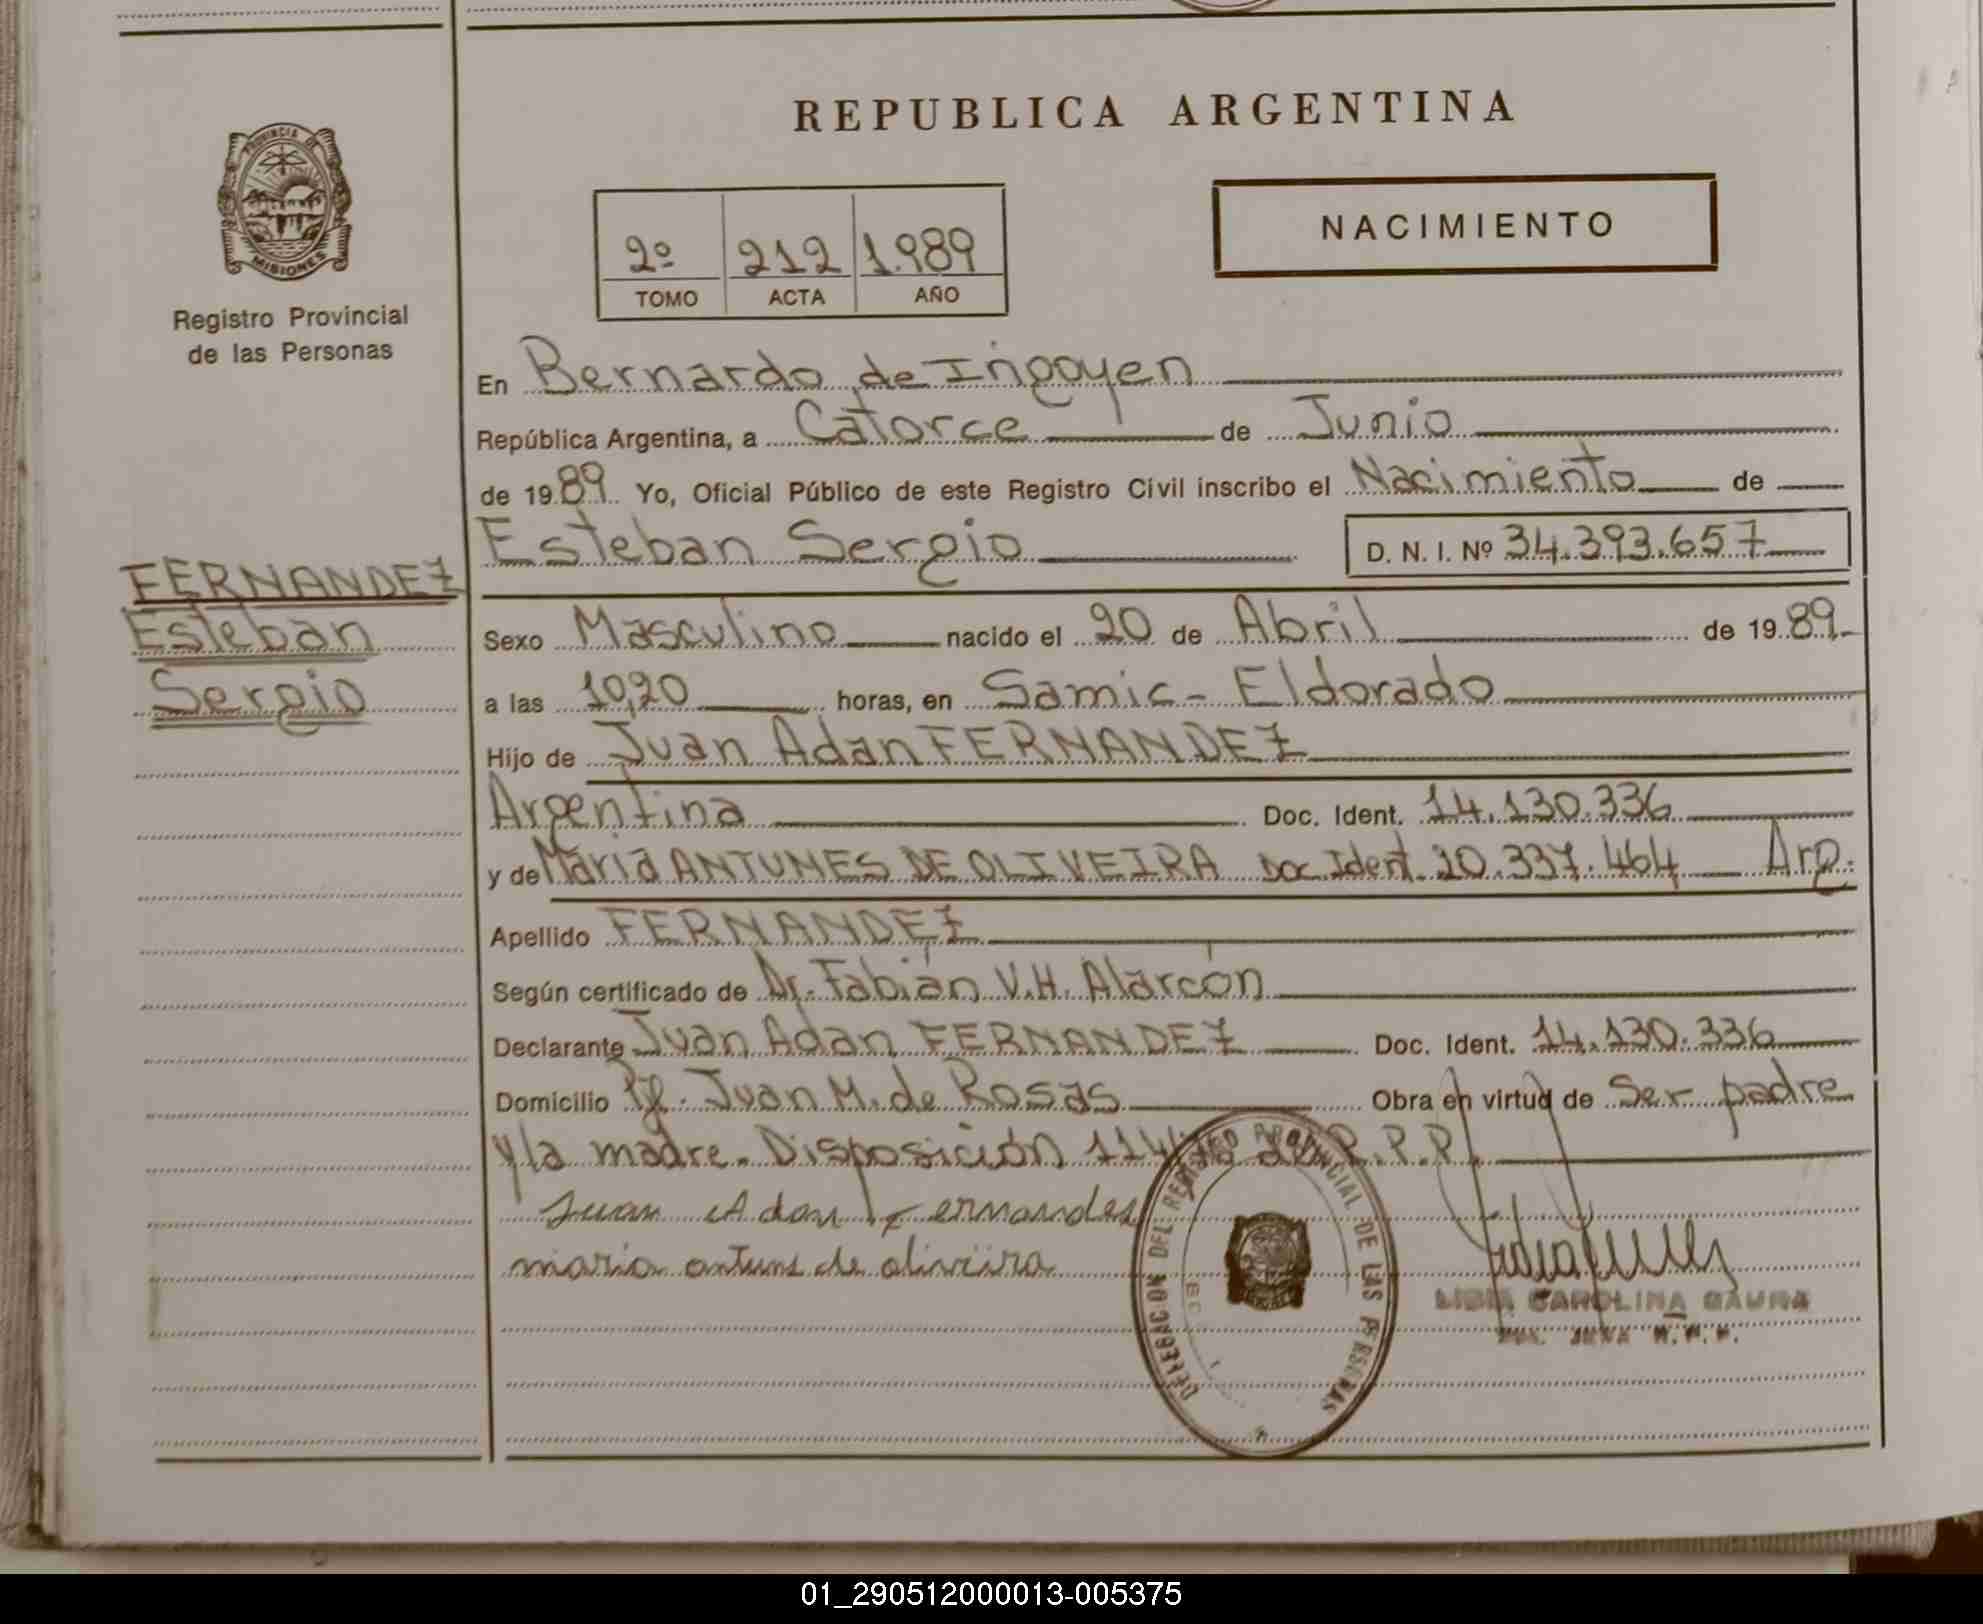 PROVINCIA DE
MISIONES
Registro Provincial
de las Personas
FERNANDEZ
Esteban
Sergio
REPUBLICA ARGENTINA
2º 212 1.989
TOMO ACTA AÑO
NACIMIENTO
En Bernardo de Irigoyen
República Argentina, a Catorce de Junio
de 1989 Yo, Oficial Público de este Registro Civil inscribo el Nacimiento de
Esteban Sergio D. N. I. Nº 34.393.657
Sexo Masculino nacido el 20 de Abril de 1989.
a las 10,20 horas, en Samic - Eldorado
Hijo de Juan Adan FERNANDEZ
Argentina Doc. Ident. 14.130.336
y de Maria ANTUNES DE OLIVEIRA Doc Ident. 20.337.464 Arg.
Apellido FERNANDEZ
Según certificado de Dr. Fabián V.H. Alarcón
Declarante Juan Adan FERNANDEZ Doc. Ident. 14.130.336
Domicilio Pje. Juan M. de Rosas Obra en virtud de Ser padre
y la madre. Disposición R.P.P.
Juan Adan Fernandes
maria antuns de oliviira
DELEGACION DEL REGISTRO PROVINCIAL DE LAS PERSONAS
LIDIA CAROLINA GAUNA
01_290512000013-005375